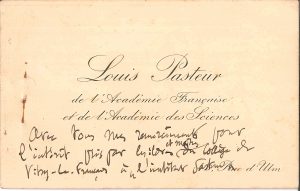 Louis Pasteur
de l'Académie Française
et de l'Académie des Sciences
Avec tous mes remerciements pour
l'intérêt pris par les élèves et maîtres du Collège de
Vitry-le-François à l'institut Pasteur
Rue d'Ulm